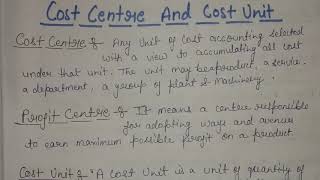 Cost Centre And Cost Unit
Cost Centre : Any Unit of Cost accounting selected
with a view to accumulating all cost
under that unit. The unit may be a product, a service,
a department, a group of plant & Machinery.
Profit Centre : It means a centre responsible
for adopting ways and avenues
to earn maximum possible profit on a product
Cost Unit : "A Cost Unit is a unit of quantity of